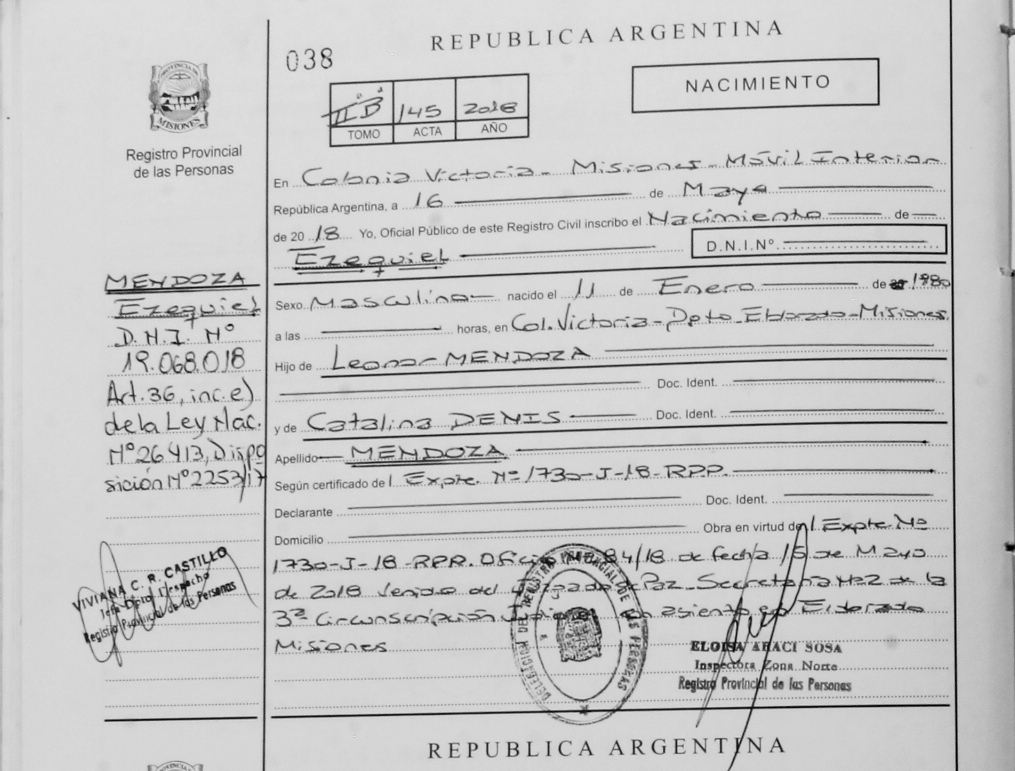 REPUBLICA ARGENTINA
038
PROVINCIA DE
MISIONES
Registro Provincial
de las Personas
II B 145 2018
TOMO ACTA AÑO
NACIMIENTO
En Colonia Victoria - Misiones - Móvil Interior
República Argentina, a 16 de Mayo
de 20 18 Yo, Oficial Público de este Registro Civil inscribo el Nacimiento de
Ezequiel
D.N.I.Nº
MENDOZA
Ezequiel
D.N.I. Nº
19.068.018
Art. 36, inc. e)
de la Ley Nac.
Nº 26413, Dispo
sición Nº 2257/17
Sexo Masculino nacido el 11 de Enero de 1980
a las horas, en Col. Victoria - Dpto. Eldorado - Misiones
Hijo de Leonor MENDOZA
Doc. Ident.
y de Catalina DENIS Doc. Ident.
Apellido MENDOZA
Según certificado de l Expte. Nº 1730-J-18-RPP.
Declarante Doc. Ident.
Domicilio Obra en virtud de l Expte. Nº
1730-J-18-RPP. Oficio 84/18 de fecha 15 de Mayo
de 2018 venido del Juzgado de Paz Secretaria Nº2 de la
3ª Circunscripción con asiento en Eldorado
Misiones
VIVIANA C. R. CASTILLO
Jefa Dpto. Despacho
Registro Provincial de las Personas
DELEGACION DEL REGISTRO PROVINCIAL DE LAS PERSONAS
ELOISA ARACI SOSA
Inspectora Zona Norte
Registro Provincial de las Personas
REPUBLICA ARGENTINA